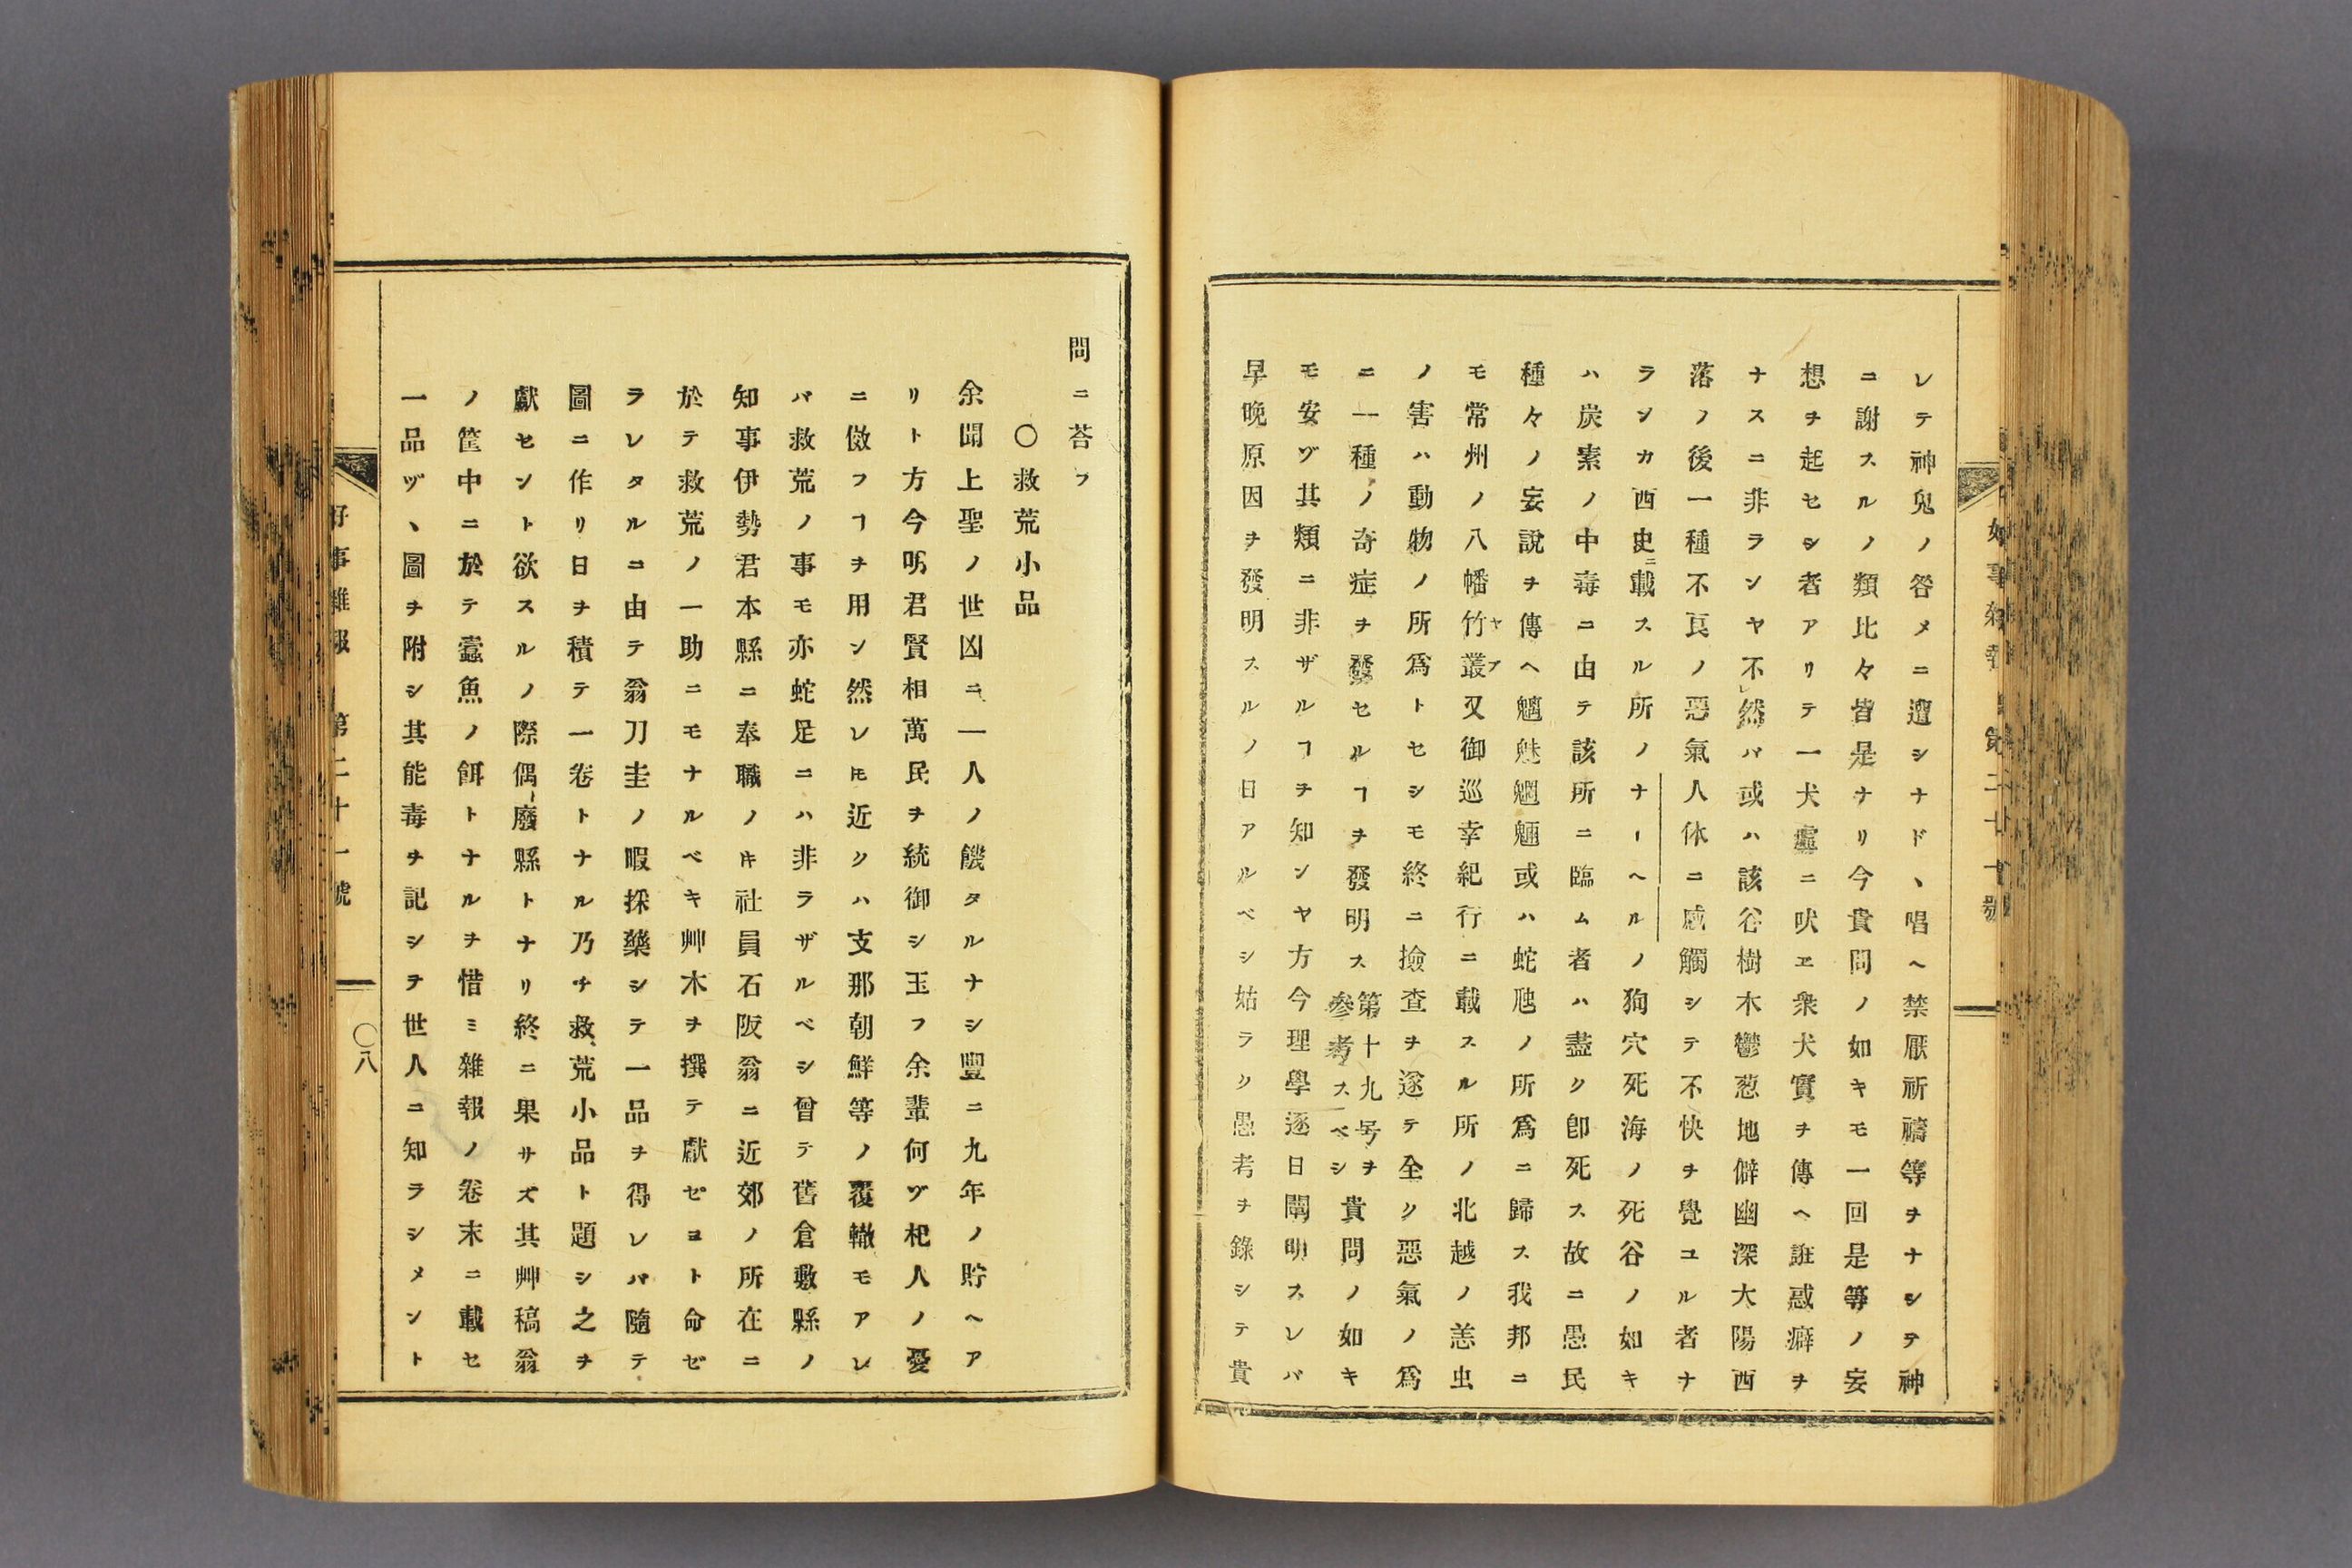 レテ神鬼ノ咎メニ遭シナド、唱ヘ禁厭祈禱等ヲナシテ神
ニ謝スルノ類比々皆是ナリ今貴問ノ如キモ一回是等ノ妄
想ヲ起セシ者アリテ一犬虛ニ吠ヱ衆犬實ヲ傳ヘ誑惑癖ヲ
ナスニ非ランヤ不然バ或ハ該谷樹木鬱葱地僻幽深大陽西
落ノ後一種不良ノ惡氣人体ニ感觸シテ不快ヲ覺ユル者ナ
ランカ西史ニ載スル所ノナーヘルノ狗穴死海ノ死谷ノ如キ
ハ炭素ノ中毒ニ由テ該所ニ臨ム者ハ盡ク卽死ス故ニ愚民
種々ノ妄說ヲ傳ヘ魑魅魍魎或ハ蛇虺ノ所爲ニ歸ス我邦ニ
モ常州ノ八幡竹叢ヤブ又御巡幸紀行ニ載スル所ノ北越ノ恙虫
ノ害ハ動物ノ所爲トセシモ終ニ撿査ヲ遂テ全ク惡氣ノ爲
ニ一種ノ奇症ヲ發セルヿヲ發明ス第十九号ヲ參考スベシ貴問ノ如キ
モ安ヅ其類ニ非ザルヿヲ知ンヤ方今理學逐日闡明スレバ
早晚原因ヲ發明スルノ日アルベシ姑ラク愚考ヲ錄シテ貴
問ニ荅フ
〇救荒小品
余聞上聖ノ世凶ニ一人ノ饑タルナシ豐ニ九年ノ貯ヘア
リト方今明君賢相萬民ヲ統御シ玉フ余輩何ヅ杞人ノ憂
ニ倣フヿヲ用ン然レ𪜈近クハ支那朝鮮等ノ覆轍モアレ
バ救荒ノ事モ亦蛇足ニハ非ラザルベシ曾テ舊倉敷縣ノ
知事伊勢君本縣ニ奉職ノ𬼀社員石阪翁ニ近郊ノ所在ニ
於テ救荒ノ一助ニモナルベキ艸木ヲ撰テ獻ゼヨト命ゼ
ラレタルコ由テ翁刀圭ノ暇採藥シテ一品ヲ得レバ隨テ
圖ニ作リ日ヲ積テ一卷トナル乃チ救荒小品ト題シ之ヲ
獻セント欲スルノ際偶廢縣トナリ終ニ果サズ其艸稿翁
ノ筐中ニ於テ蠧魚ノ餌トナルヲ惜ミ雜報ノ卷末ニ載セ
一品ヅヽ圖ヲ附シ其能毒ヲ記シヲ世人ニ知ラシメント
好事雜報 第二十一號
〇八